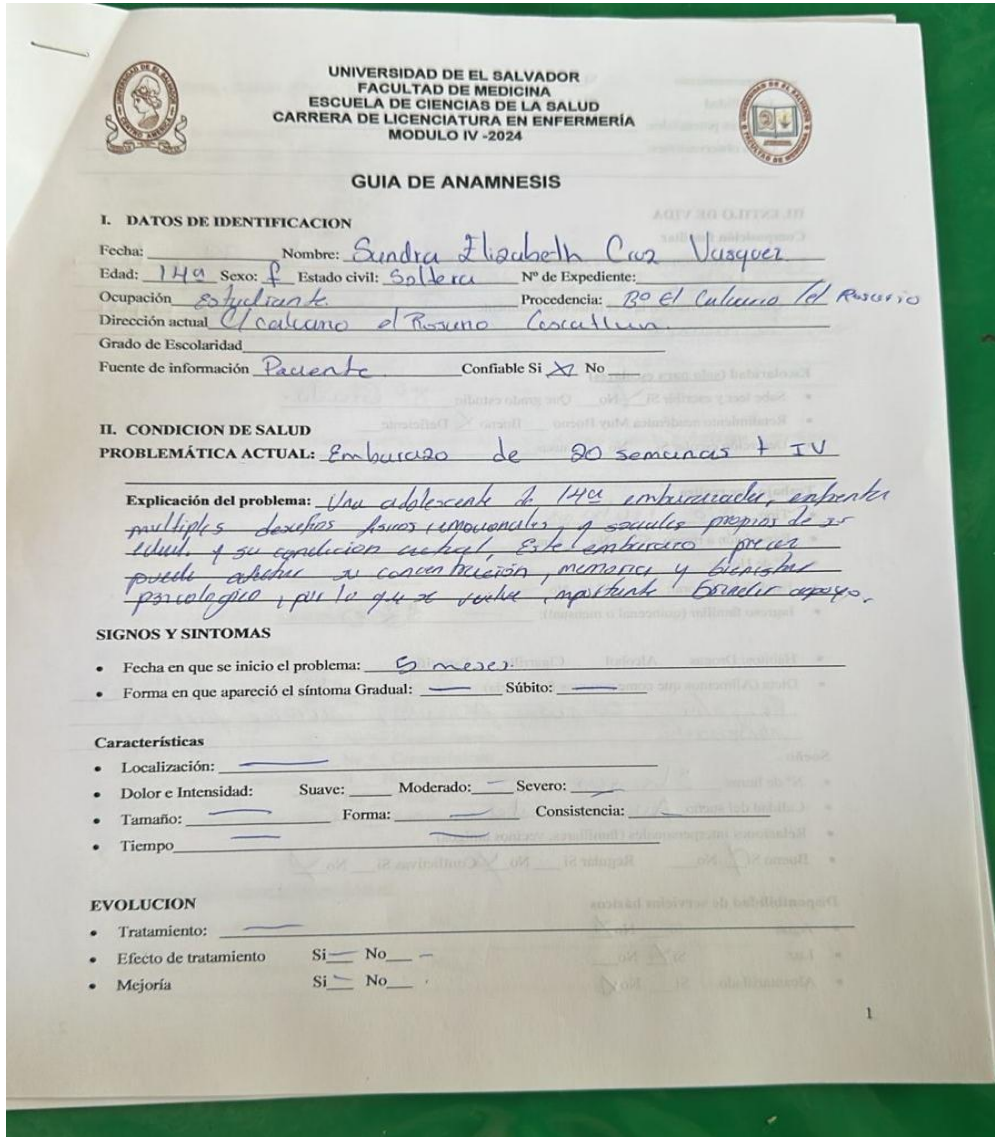 UNIVERSIDAD DE EL SALVADOR
FACULTAD DE MEDICINA
ESCUELA DE CIENCIAS DE LA SALUD
CARRERA DE LICENCIATURA EN ENFERMERÍA
MODULO IV -2024
GUIA DE ANAMNESIS
I. DATOS DE IDENTIFICACION
Fecha: Nombre: Sandra Elizabeth Cruz Vasquez
Edad: 14a Sexo: f Estado civil: Soltera Nº de Expediente:
Ocupación Estudiante. Procedencia: Bo El Calvario /el Rosario
Dirección actual El calvario el Rosario
Grado de Escolaridad
Fuente de información Paciente. Confiable Si X No
II. CONDICION DE SALUD
PROBLEMÁTICA ACTUAL: Embarazo de 20 semanas + IV
Explicación del problema: Una adolescente de 14a embarazada, enfrenta
multiples desafios fisicos, emocionales, y sociales propios de su
edad y su condicion actual, Este embarazo precoz
puede afectar su concentración, memoria y bienestar
psicologico, por lo que se vuelve importante brindar apoyo.
SIGNOS Y SINTOMAS
• Fecha en que se inicio el problema: 5 meses.
• Forma en que apareció el síntoma Gradual: — Súbito: —
Características
• Localización: —
• Dolor e Intensidad: Suave: Moderado: — Severo: —
• Tamaño: — Forma: — Consistencia: —
• Tiempo —
EVOLUCION
• Tratamiento: —
• Efecto de tratamiento Si — No —
• Mejoría Si — No
1